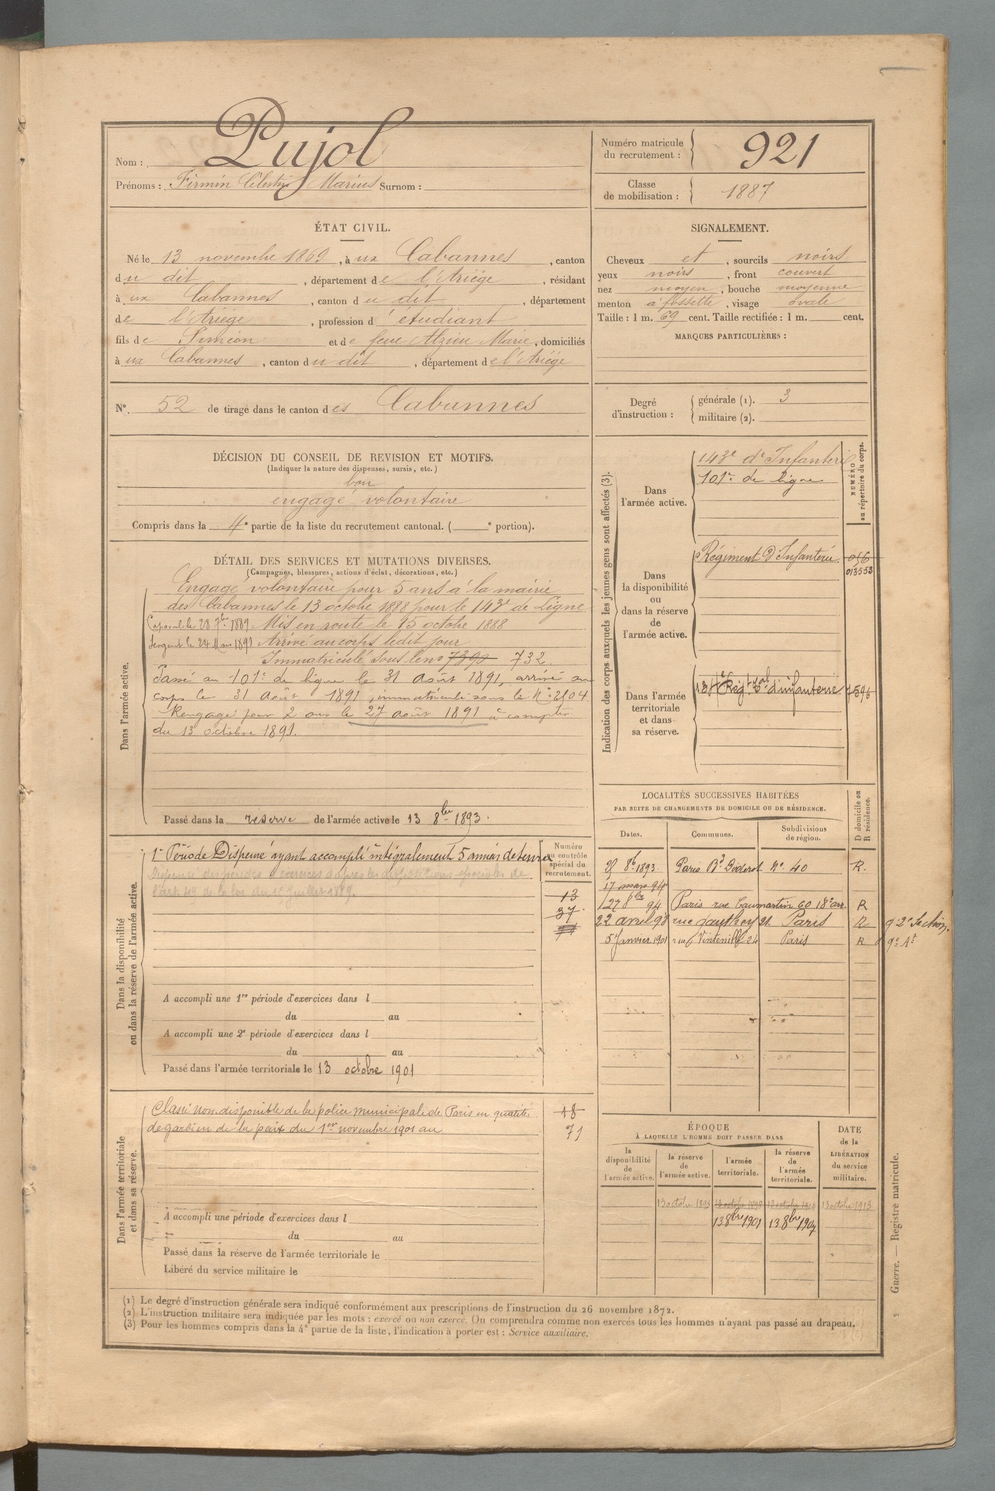 Nom : Pujol
Prénoms : Firmin Célestin Marius Surnom :
Numéro matricule du recrutement : 921
Classe de mobilisation : 1887
ÉTAT CIVIL.
Né le 13 novembre 1869, à ux Cabannes, canton
du dit, département de l'Ariège, résidant
à ux Cabannes, canton du dit, département
de l'Ariège, profession d'étudiant
fils de Siméon et de feue Alzieu Marie, domiciliés
à ux Cabannes, canton du dit, département de l'Ariège
N° 52 de tirage dans le canton des Cabannes
SIGNALEMENT.
Cheveux et, sourcils noirs
yeux noirs, front couvert
nez moyen, bouche moyenne
menton à fossette, visage ovale
Taille : 1 m. 69 cent. Taille rectifiée : 1 m. cent.
MARQUES PARTICULIÈRES :
Degré d'instruction : générale (1). 3
militaire (2).
DÉCISION DU CONSEIL DE REVISION ET MOTIFS.
(Indiquer la nature des dispenses, sursis, etc.)
bon
engagé volontaire
Compris dans la 4e partie de la liste du recrutement cantonal. ( e portion).
DÉTAIL DES SERVICES ET MUTATIONS DIVERSES.
(Campagnes, blessures, actions d'éclat, décorations, etc.)
Dans l'armée active.
Engagé volontaire pour 5 ans à la mairie
des Cabannes le 13 octobre 1888 pour le 143e de Ligne
Caporal le 28 7bre 1889 Mis en route le 15 octobre 1888
Sergent le 24 Mars 1891 Arrivé au corps ledit jour
Immatriculé sous le no 732
Passé au 101e de ligne le 31 août 1891, arrivé au
corps le 31 août 1891, immatriculé sous le N° 2104
Rengagé pour 2 ans le 27 août 1891 à compter
du 13 octobre 1891.
Passé dans la réserve de l'armée active le 13 8bre 1893.
Indication des corps auxquels les jeunes gens sont affectés (3).
NUMÉRO au répertoire du corps.
Dans l'armée active.
143e d'Infanterie
101e de ligne
Dans la disponibilité ou dans la réserve de l'armée active.
Régiment d'Infanterie
013553
Dans l'armée territoriale et dans sa réserve.
Dans la disponibilité ou dans la réserve de l'armée active.
1re Période Dispensé ayant accompli intégralement 5 années de service
Numéro au contrôle spécial du recrutement.
13
37
A accompli une 1re période d'exercices dans l
du au
A accompli une 2e période d'exercices dans l
du au
Passé dans l'armée territoriale le 13 octobre 1901
LOCALITÉS SUCCESSIVES HABITÉES
PAR SUITE DE CHANGEMENTS DE DOMICILE OU DE RÉSIDENCE.
Dates. Communes. Subdivisions de région. D domicile ou R résidence.
8bre 1893 Paris Bd Diderot n° 40 R.
17 mars 94
27 8bre 94 Paris rue Caumartin 60 18e arr. R
22 avril 98 Paris R 9 2e Section.
5 Janvier 1901 rue Vintimille 24 Paris R 9e Ar
Dans l'armée territoriale et dans sa réserve.
Classé non disponible de la police municipale de Paris en qualité
de gardien de la paix du 1er novembre 1901 au
18
71
A accompli une période d'exercices dans l
du au
Passé dans la réserve de l'armée territoriale le
Libéré du service militaire le
ÉPOQUE
À LAQUELLE L'HOMME DOIT PASSER DANS
la disponibilité de l'armée active. la réserve de l'armée active. l'armée territoriale. la réserve de l'armée territoriale. DATE de la LIBÉRATION du service militaire.
13 octobre 1893 13 octobre 1913
13 8bre 1901 13 8bre 1907
Guerre. — Registre matricule.
(1) Le degré d'instruction générale sera indiqué conformément aux prescriptions de l'instruction du 26 novembre 1872.
(2) L'instruction militaire sera indiquée par les mots : exercé ou non exercé. On comprendra comme non exercés tous les hommes n'ayant pas passé au drapeau.
(3) Pour les hommes compris dans la 4e partie de la liste, l'indication à porter est : Service auxiliaire.